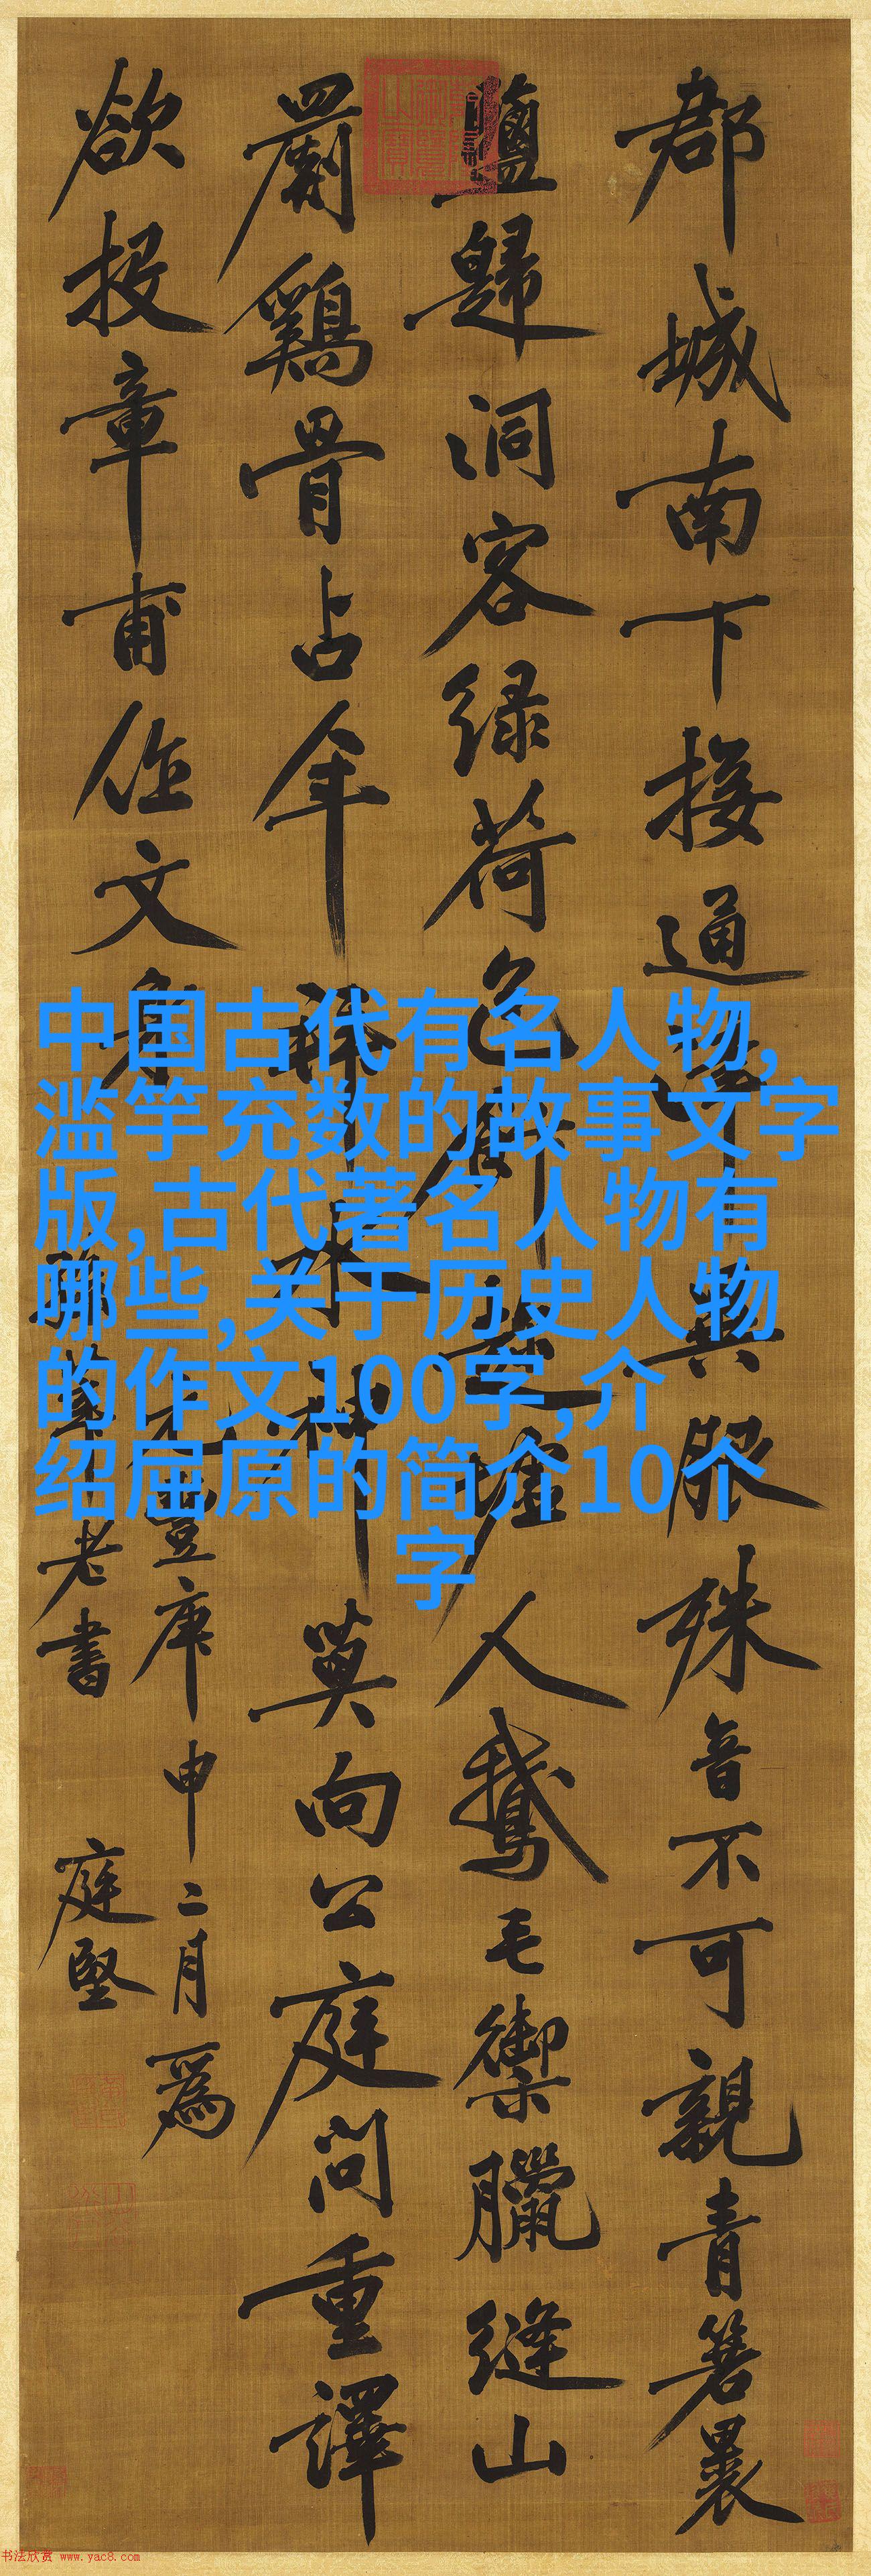 郡城南下接通津異服殊音不可親青箬裹
鹽歸洞客緑荷包飯趁墟人鵝毛禦臘縫山
罽鷄骨占年拜水神莫向公庭問重譯
欲投章甫作文身
元豐庚申二月為
老書
庭堅
中国古代有名人物,
滥竽充数的故事文字
版,古代著名人物有
哪些,关于历史人物
的作文100字,介
绍屈原的简介10个
字
书法欣赏 www.yac8.com